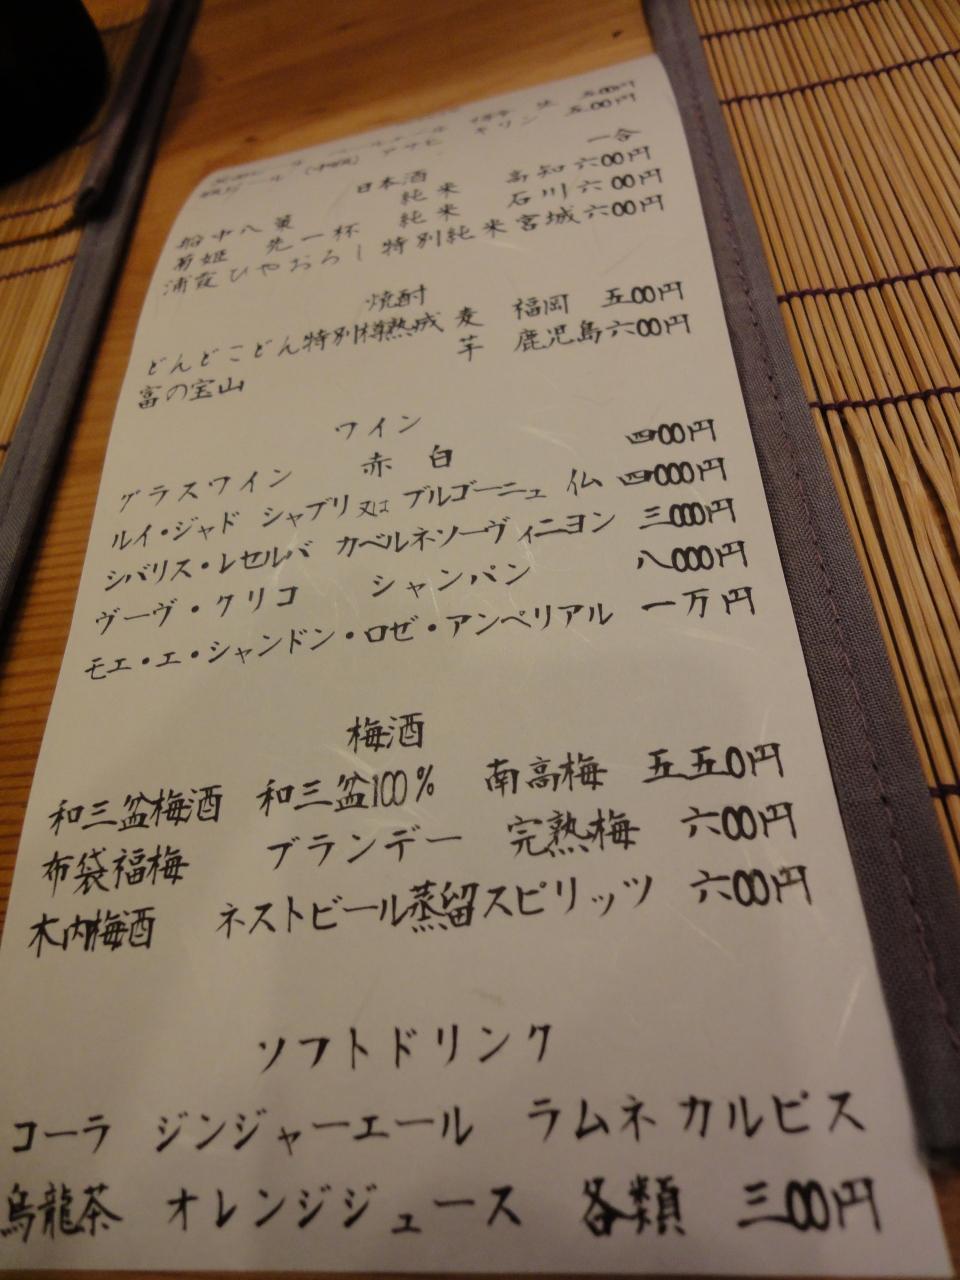 ビール アサヒ キリン 五00円
日本酒 一合
船中八策 純米 高知 六00円
菊姫 先一杯 純米 石川 六00円
浦霞ひやおろし 特別純米 宮城 六00円
焼酎
どんどこどん特別樽熟成 麦 福岡 五00円
富の宝山 芋 鹿児島 六00円
ワイン
グラスワイン 赤 白 四00円
ルイ・ジャド シャブリ又はブルゴーニュ 仏 四000円
シバリス・レセルバ カベルネソーヴィニヨン 三000円
ヴーヴ・クリコ シャンパン 八000円
モエ・エ・シャンドン・ロゼ・アンペリアル 一万円
梅酒
和三盆梅酒 和三盆100% 南高梅 五五0円
布袋福梅 ブランデー 完熟梅 六00円
木内梅酒 ネストビール蒸留スピリッツ 六00円
ソフトドリンク
コーラ ジンジャーエール ラムネ カルピス
烏龍茶 オレンジジュース 各類 三00円